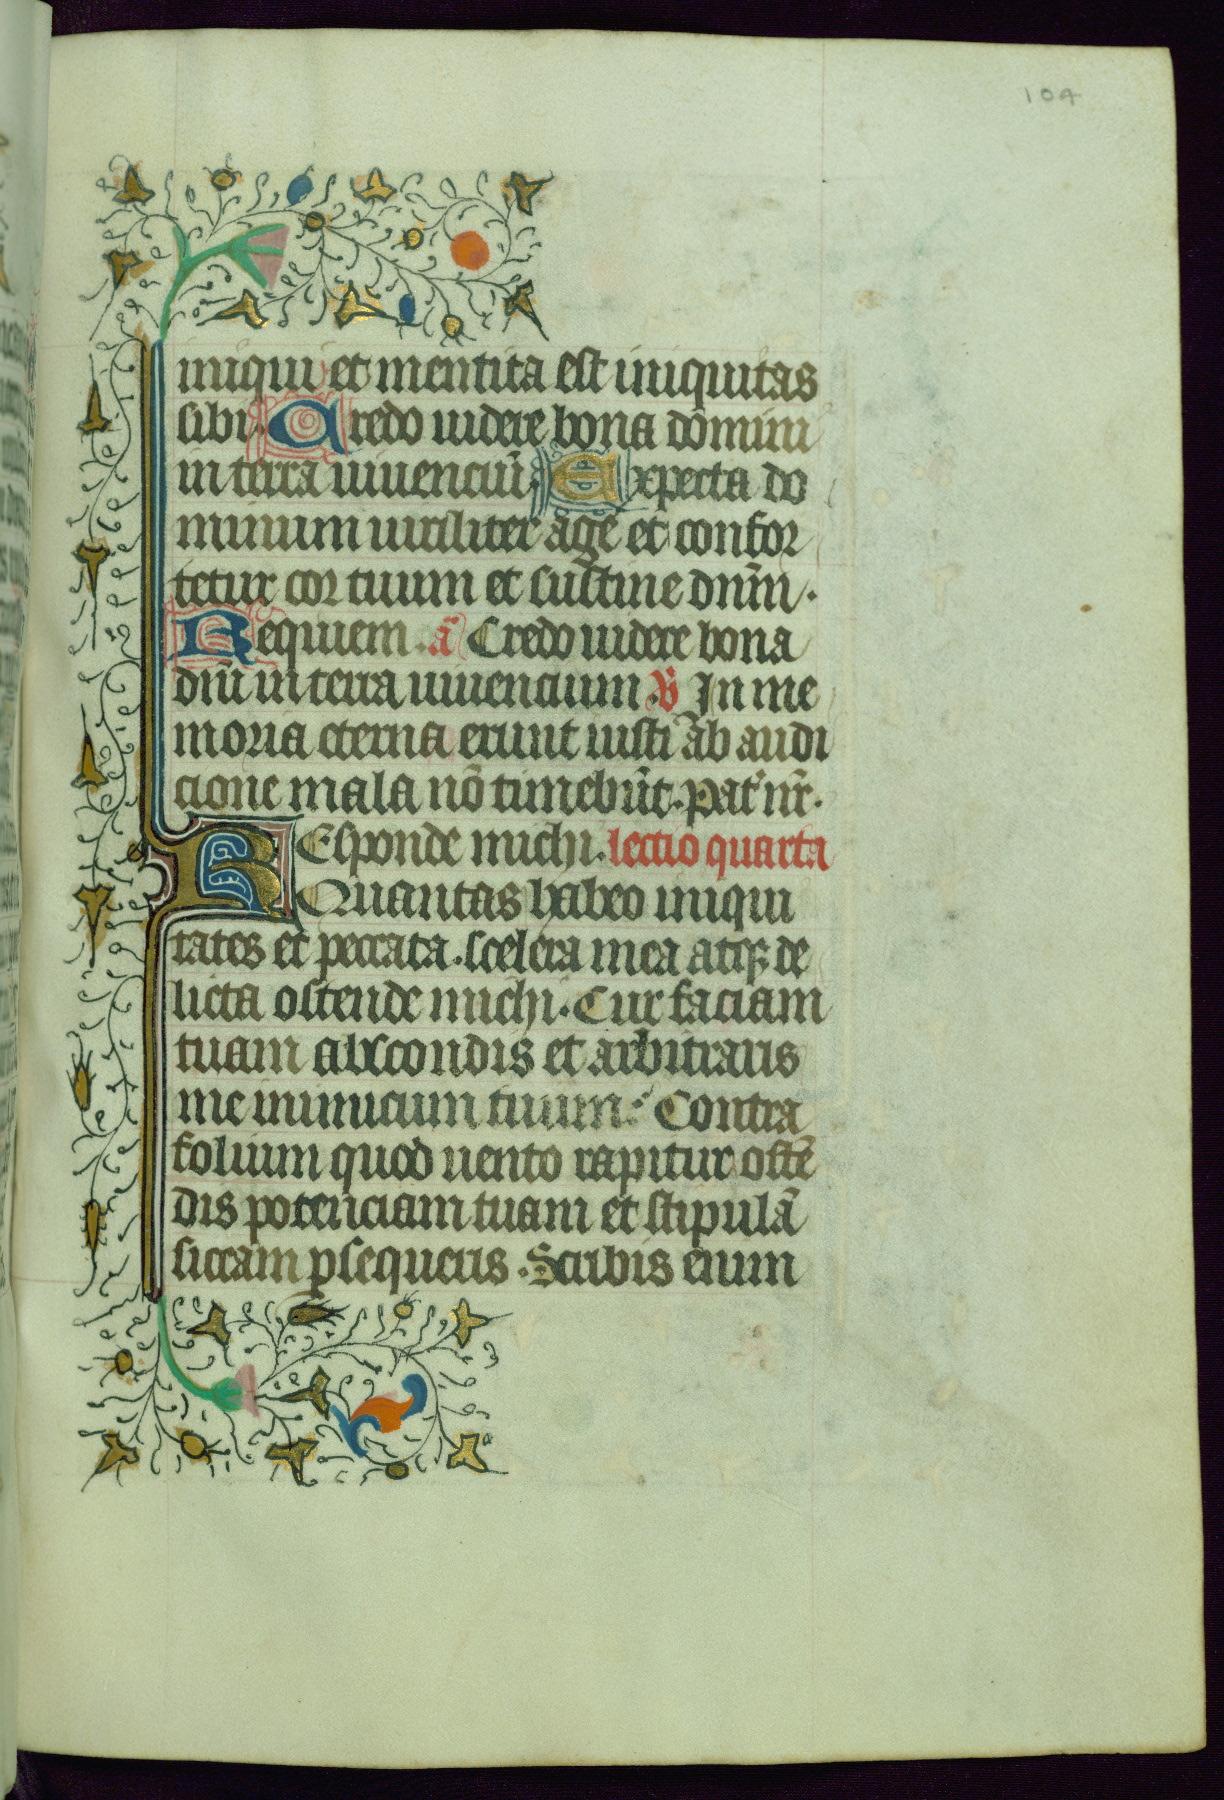 104
iniqui et mentita est iniquitas
sibi. Credo uidere bona domini
in terra uiuenciū. Expecta do
minum uiriliter age et confor
tetur cor tuum et sustine dnm̄.
Requiem. a᷑ Credo uidere bona
dn̄i in terra uiuencium. ꟟ In me
moria eterna erunt iusti Ab audi
cione mala nō timebūt. Pat' nr̄.
REsponde michi. lectio quarta
Quantas habeo iniqui
tates et peccata. scelera mea atqꝫ de
licta ostende michi. Cur faciam
tuam abscondis et arbitraris
me inimicum tuum. Contra
folium quod uento rapitur ostē
dis potenciam tuam et stipulā
siccam ꝑsequeris. Scribis enim